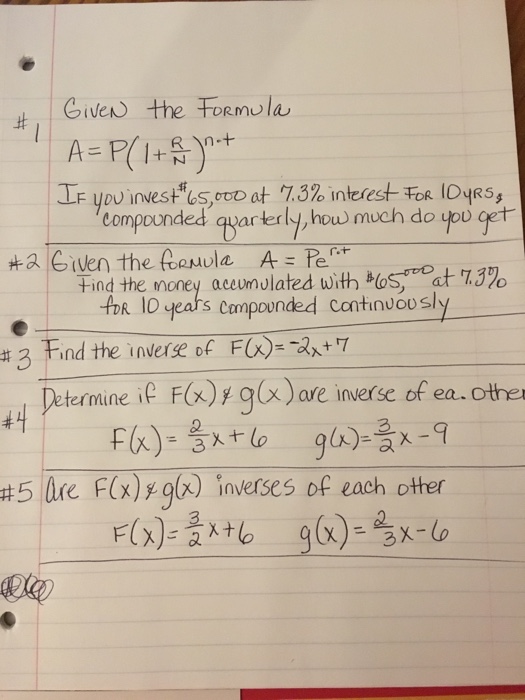 #1 Given the Formula
A = P(1 + R/N)^n·t
If you invest $65,000 at 7.3% interest for 10 yrs,
compounded quarterly, how much do you get
#2 Given the formula A = Pe^r·t
Find the money accumulated with $65,000 at 7.3%
for 10 years compounded continuously
#3 Find the inverse of F(x) = -2x + 7
Determine if F(x) & g(x) are inverse of ea. other
#4 F(x) = 2/3 x + 6 g(x) = 3/2 x - 9
#5 Are F(x) & g(x) inverses of each other
F(x) = 3/2 x + 6 g(x) = 2/3 x - 6